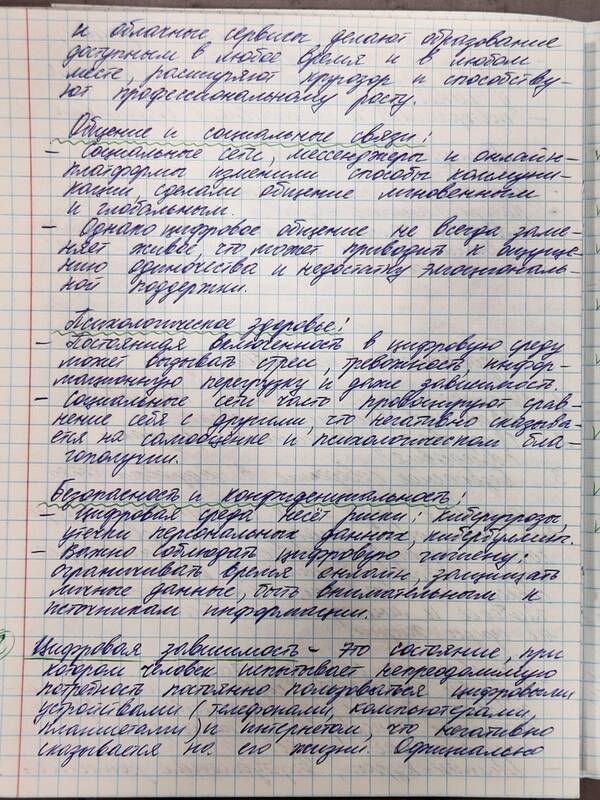 и облачные сервисы делают образование
доступным в любое время и в любом
месте, расширяют кругозор и способству-
ют профессиональному росту.
Общение и социальные связи:
- Социальные сети, мессенджеры и онлайн-
платформы изменили способы коммуни-
кации, сделали общение мгновенным
и глобальным.
- Однако цифровое общение не всегда заме-
няет живое, что может приводить к ощуще-
нию одиночества и недостатку эмоциональ-
ной поддержки.
Психологическое здоровье:
- Постоянная включённость в цифровую среду
может вызывать стресс, тревожность, инфор-
мационную перегрузку и даже зависимость.
- Социальные сети часто провоцируют срав-
нение себя с другими, что негативно сказыва-
ется на самооценке и психологическом бла-
гополучии.
Безопасность и конфиденциальность:
- Цифровая среда несёт риски: киберугрозы,
утечки персональных данных, кибербуллинг.
- Важно соблюдать цифровую гигиену:
ограничивать время онлайн, защищать
личные данные, быть внимательным к
источникам информации.
Цифровая зависимость - это состояние, при
котором человек испытывает непреодолимую
потребность постоянно пользоваться цифровыми
устройствами (телефонами, компьютерами,
планшетами) и интернетом, что негативно
сказывается на его жизни. Официально